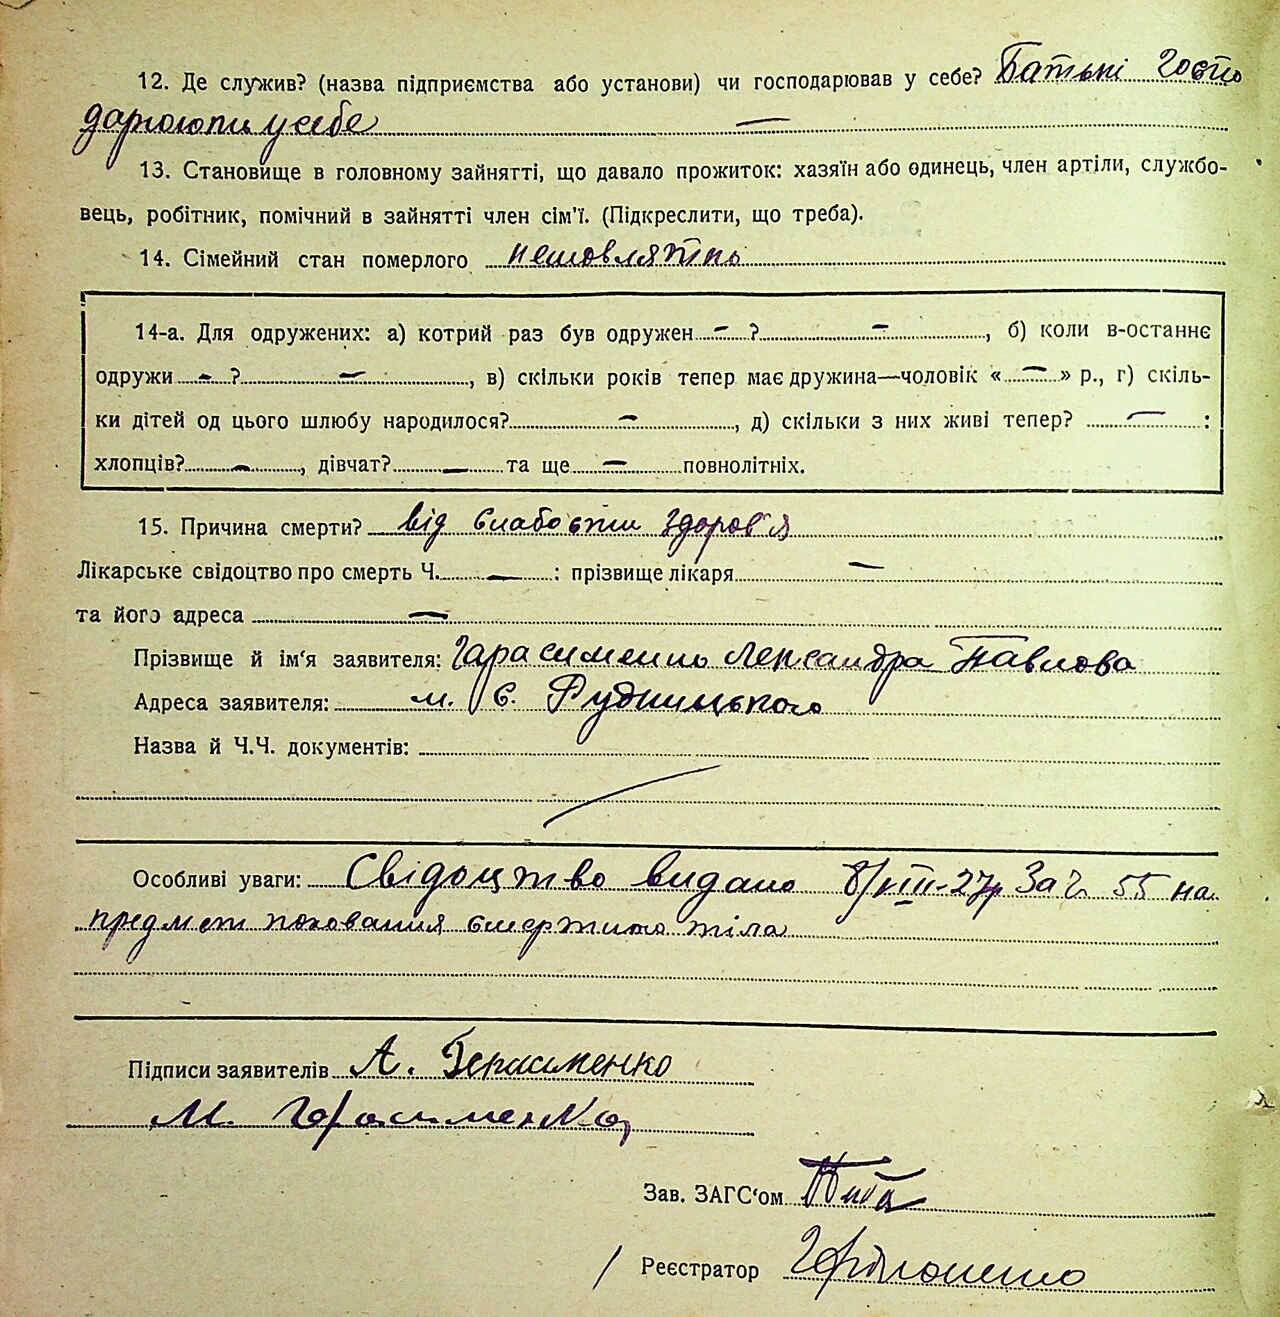 12. Де служив? (назва підприємства або установи) чи господарював у себе? Батькі госпо
дарюють у себе —
13. Становище в головному зайнятті, що давало прожиток: хазяїн або одинець, член артіли, службо-
вець, робітник, помічний в зайнятті член сім'ї. (Підкреслити, що треба).
14. Сімейний стан померлого немовлятко
14-а. Для одружених: а) котрий раз був одружен — ? —, б) коли в-останнє
одружи — ? —, в) скільки років тепер має дружина—чоловік « — » р., г) скіль-
ки дітей од цього шлюбу народилося? —, д) скільки з них живі тепер? — :
хлопців? —, дівчат? — та ще — повнолітніх.
15. Причина смерти? від слабости здоров'я
Лікарське свідоцтво про смерть Ч. — : прізвище лікаря —
та його адреса —
Прізвище й ім'я заявителя: Гарасименко Лександра Павлова
Адреса заявителя: м. с. Рудницького
Назва й Ч.Ч. документів:
Особливі уваги: Свідоцтво видано 8/VIII-27р За Ч. 55 на
предмет поховання смертного тіла
Підписи заявителів А. Герасименко
М. Герасименко
Зав. ЗАГС'ом
Реєстратор